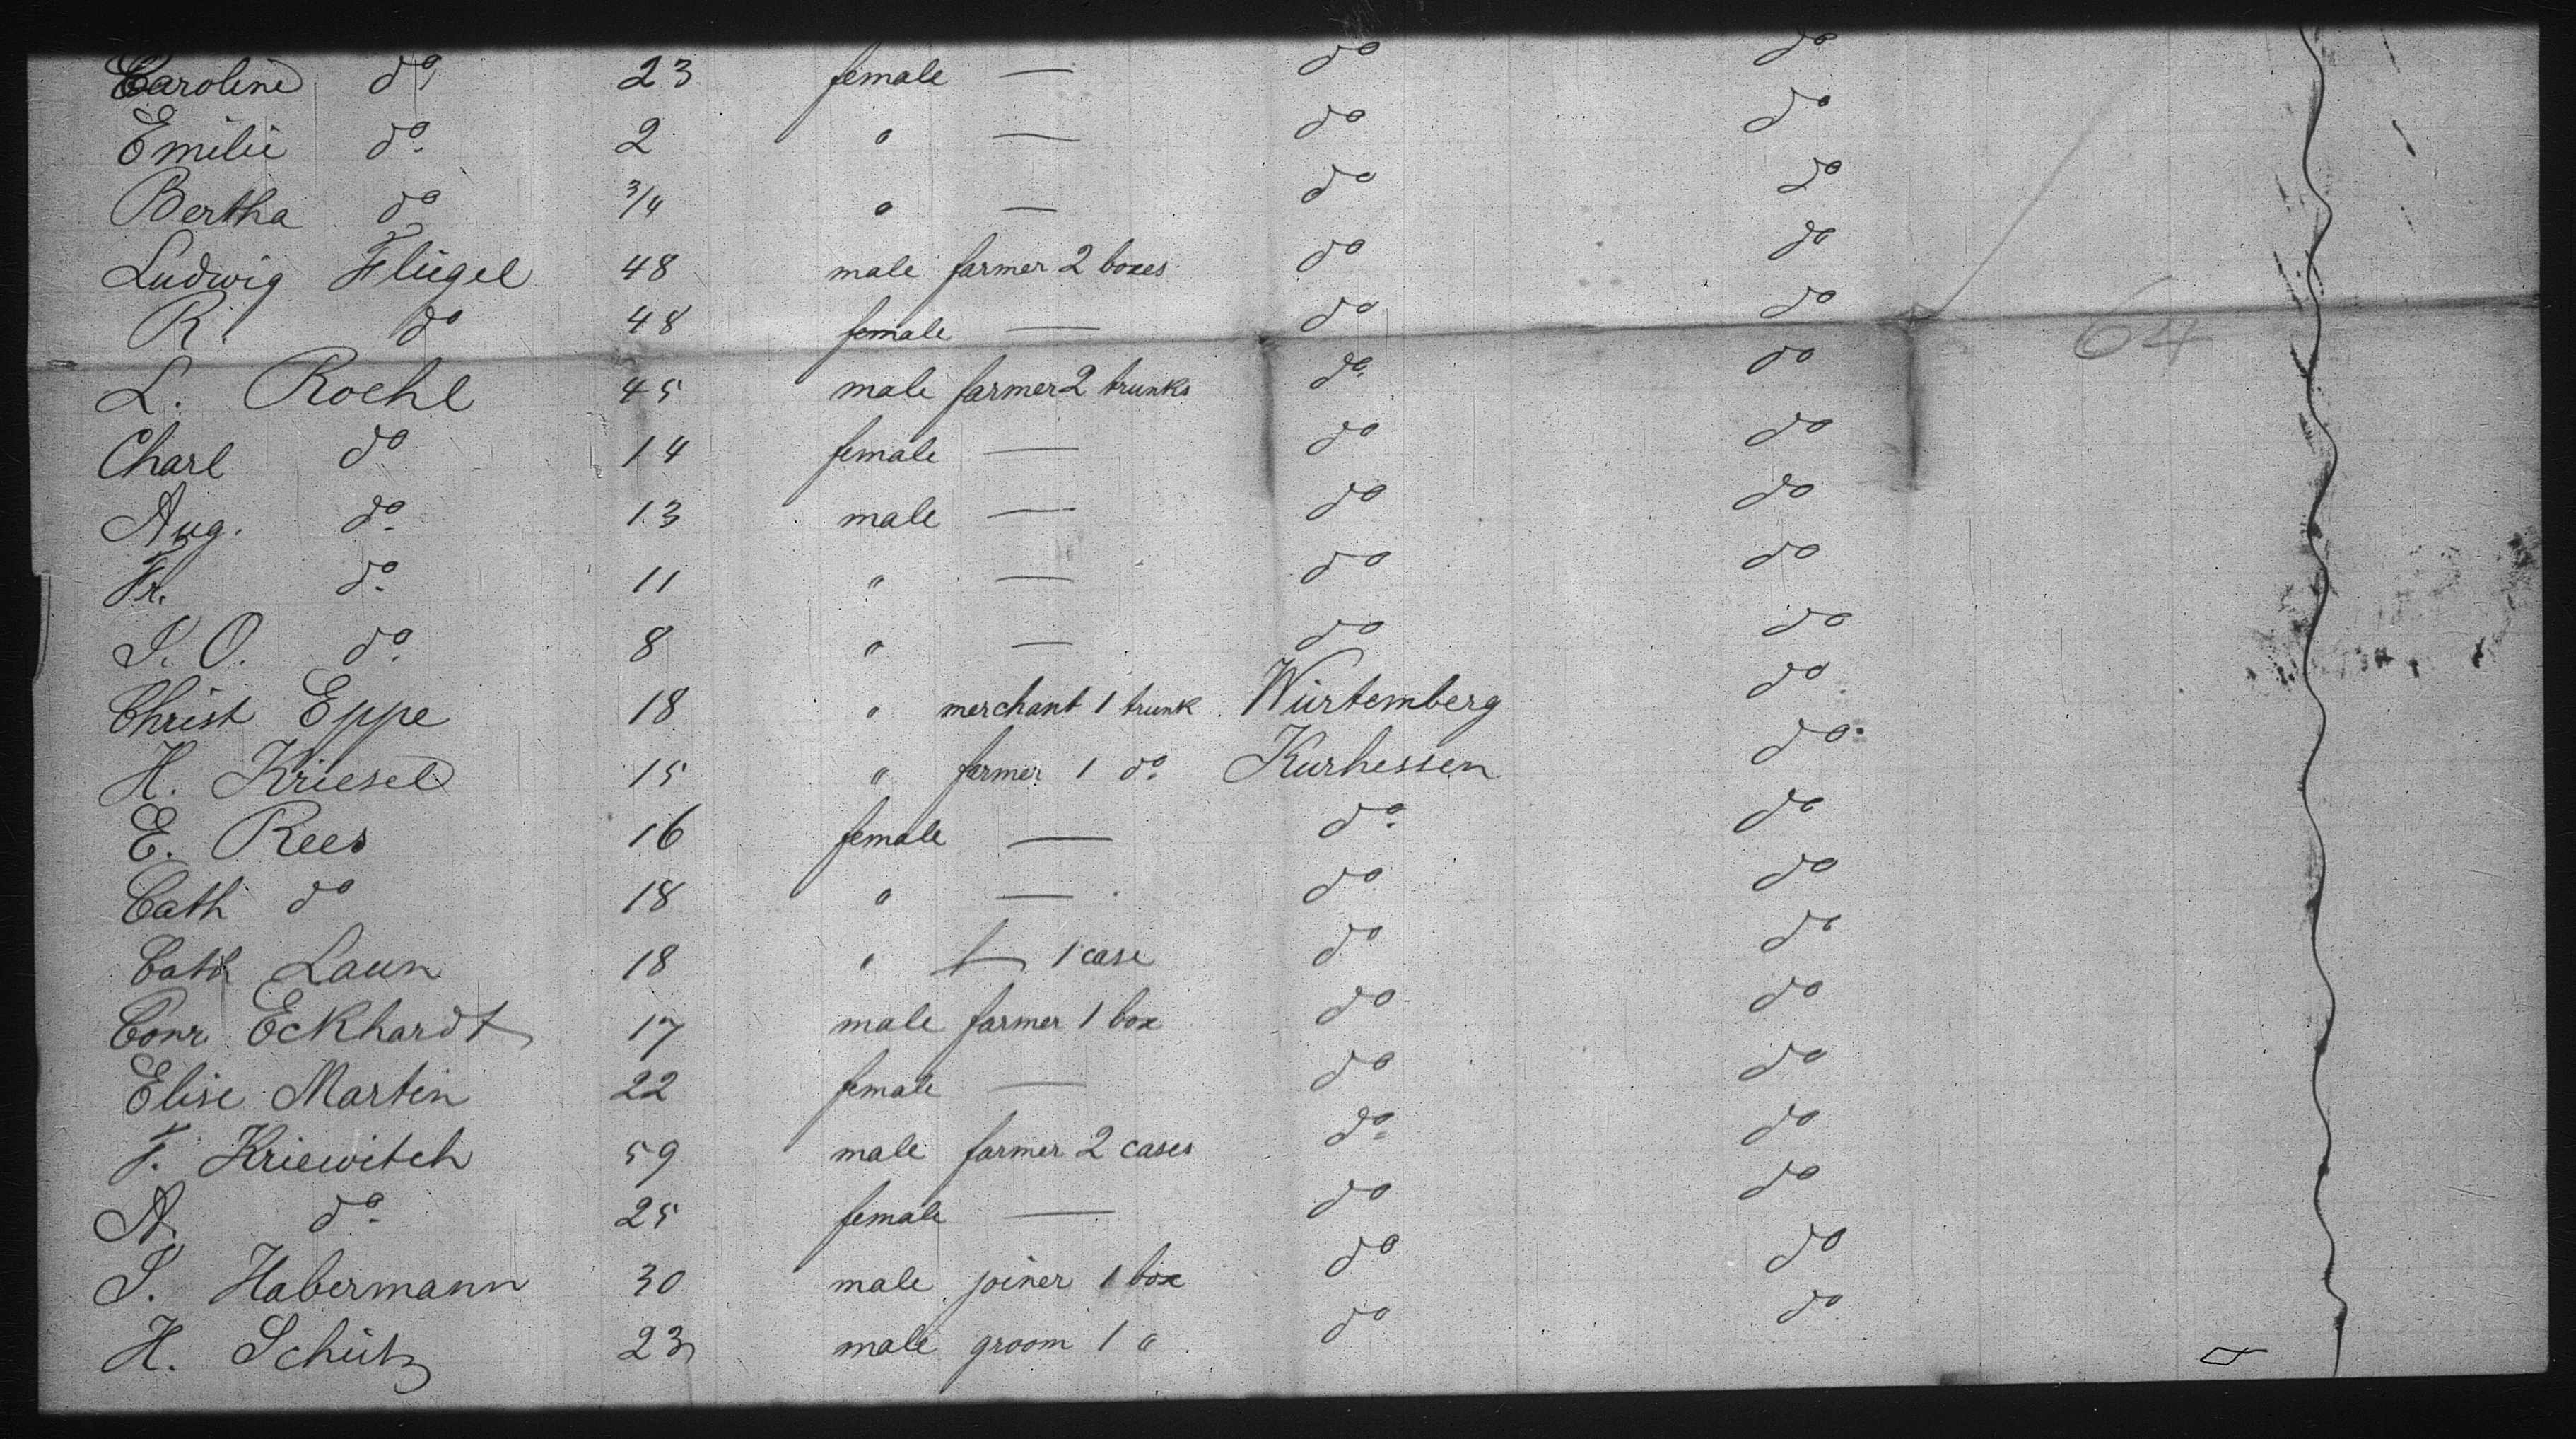 Caroline do 23 female — do do
Emilie do 2 " — do do
Bertha do 3/4 " — do do
Ludwig Flügel 48 male farmer 2 boxes do do
R. do 48 female — do do
64
L. Roehl 45 male farmer 2 trunks do do
Charl do 14 female — do do
Aug. do 13 male — do do
Fr. do 11 " — do do
J. O. do 8 " — do do
Christ Eppe 18 " merchant 1 trunk Würtemberg do
H. Kriesel 15 " farmer 1 do Kurhessen do
E. Rees 16 female — do do
Cath do 18 " — do do
Cath Laun 18 " — 1 case do do
Conr. Eckhardt 17 male farmer 1 box do do
Elise Martin 22 female — do do
F. Kriewitch 59 male farmer 2 cases do do
A. do 25 female — do do
J. Habermann 30 male joiner 1 box do do
H. Schütz 23 male groom 1 " do do